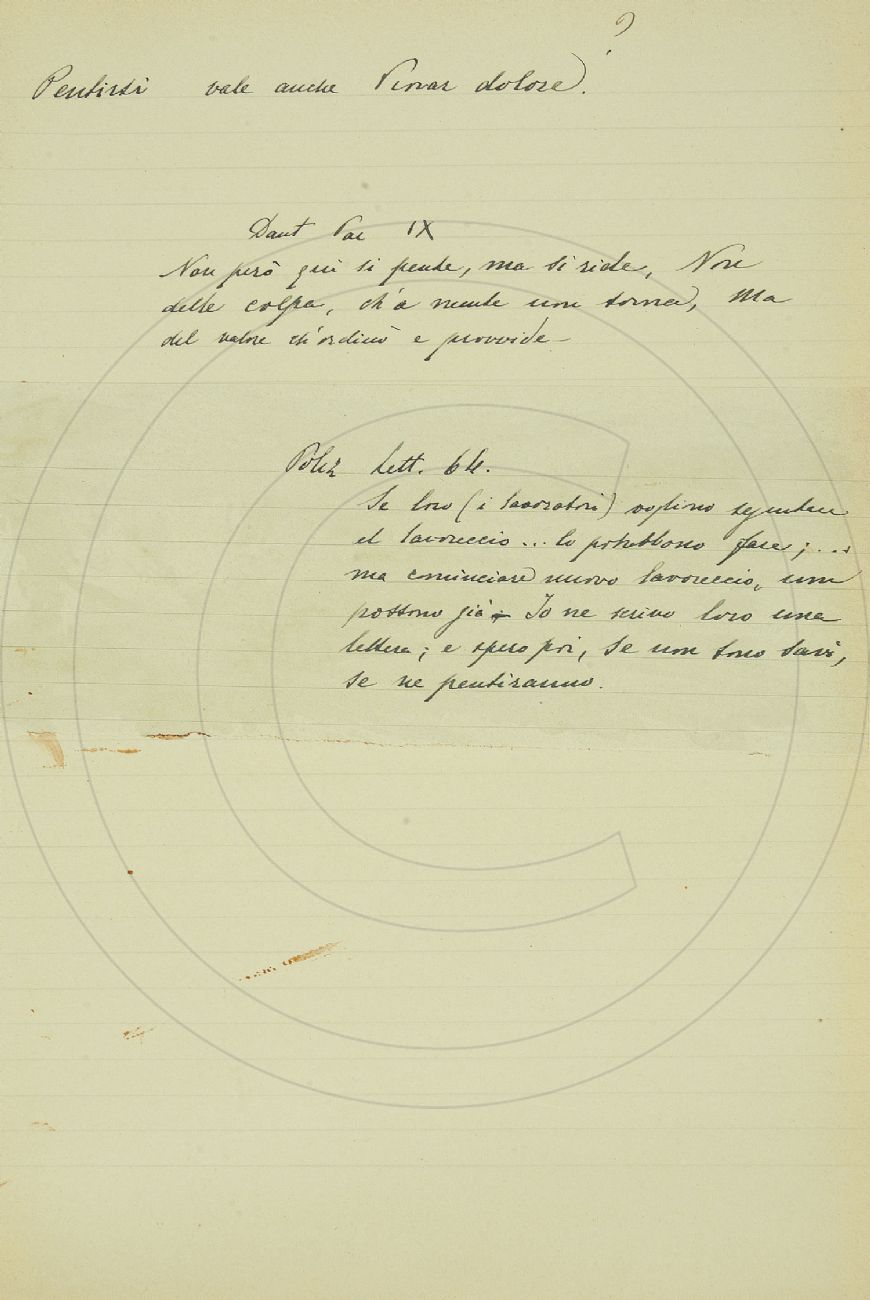 ?
Pentirsi vale anche Provar dolore.
Dant Par IX
Non però qui si pente, ma si ride, Non
della colpa, ch'a mente non torna, Ma
del valore ch'ordinò e provvide
Poliz Lett. 64.
Se loro (i lavoratori) vogliono
el lavoreccio... lo potrebbono fare; ...
ma cominciare nuovo lavoreccio, non
possono già Io ne scrivo loro una
lettera; e spero poi, se non sono savi,
se ne pentiranno.